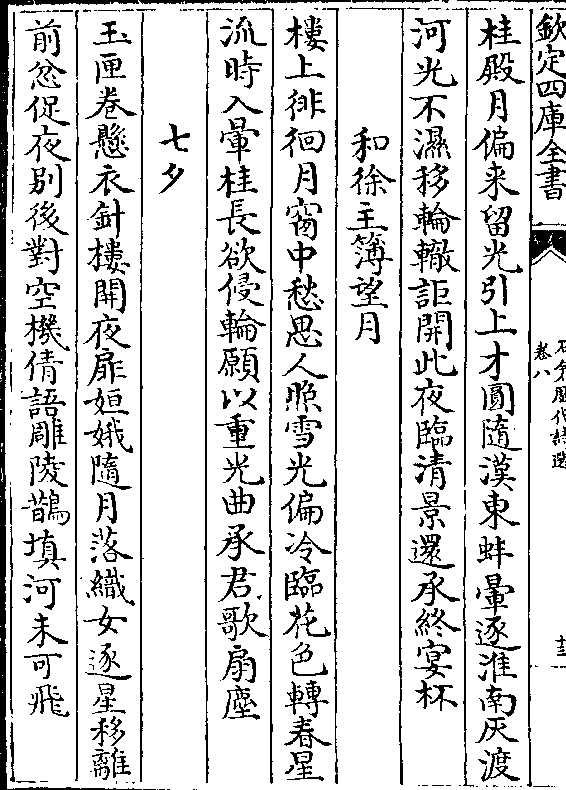 欽定四庫全書
石倉歷代詩選
卷八
十三
桂殿月偏来留光引上才圓隨漢東蚌暈逐淮南灰渡
河光不濕移輪轍詎開此夜臨清景還承終宴杯
和徐主簿望月
樓上徘徊月窗中愁思人照雪光偏冷臨花色轉春星
流時入暈桂長欲侵輪願以重光曲承君歌扇塵
七夕
玉匣卷懸衣針樓開夜扉姮娥隨月落織女逐星移離
前忿促夜別後對空機倩語雕陵鵲填河未可飛